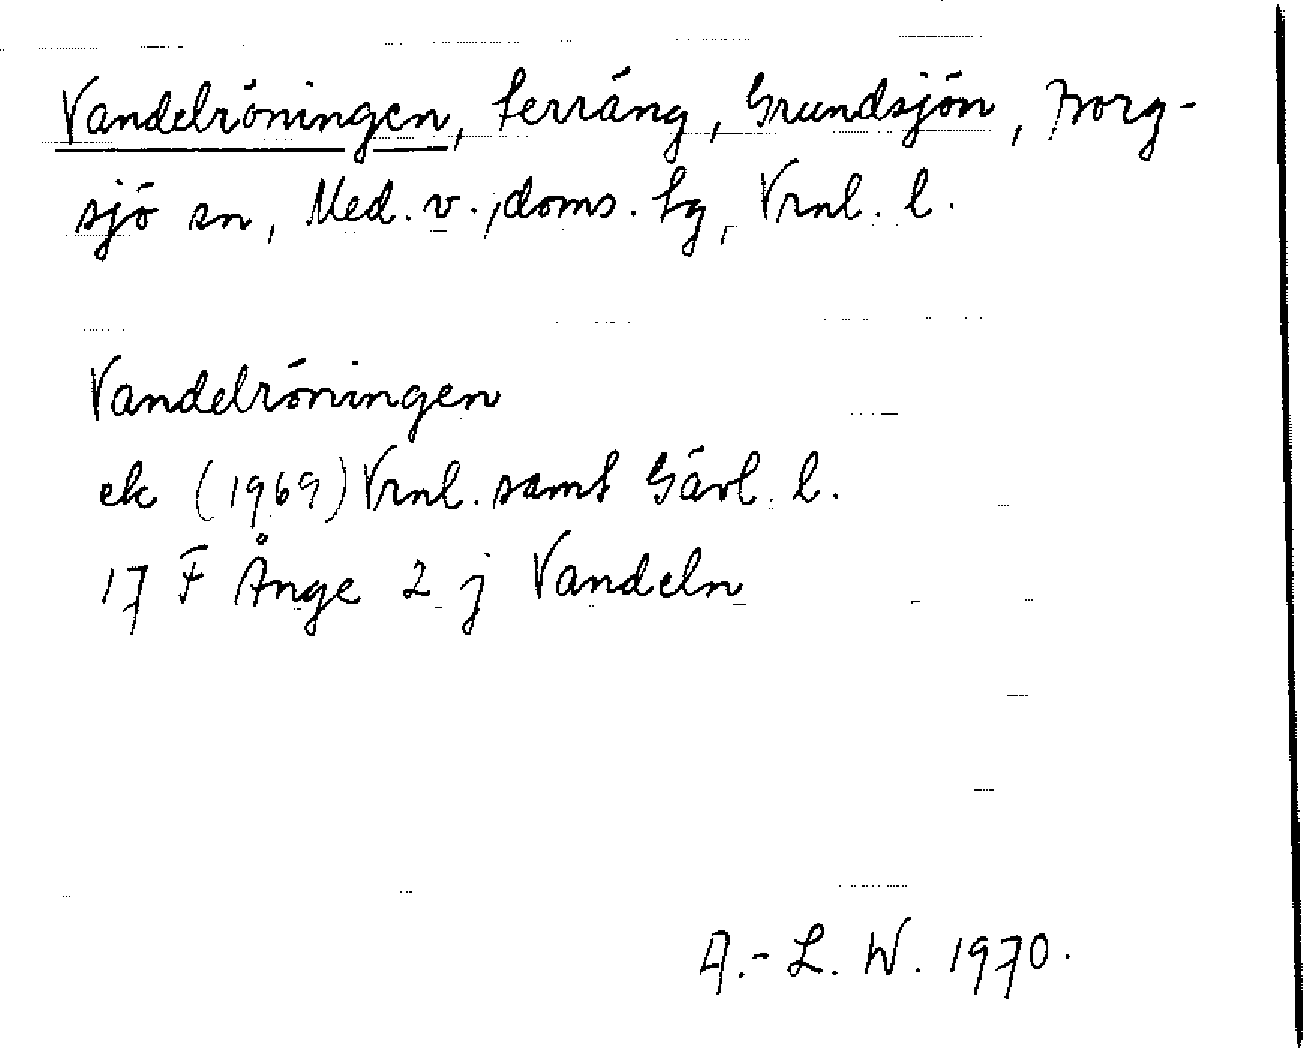 Vandelröningen, terräng, Grundsjön, Borg-
sjö sn, Med. v., doms. tg, Vrnl. l.
Vandelröningen
ek (1969) Vrnl. samt Gävl. l.
17 F Ånge 2 j Vandeln
A.-L. W. 1970.